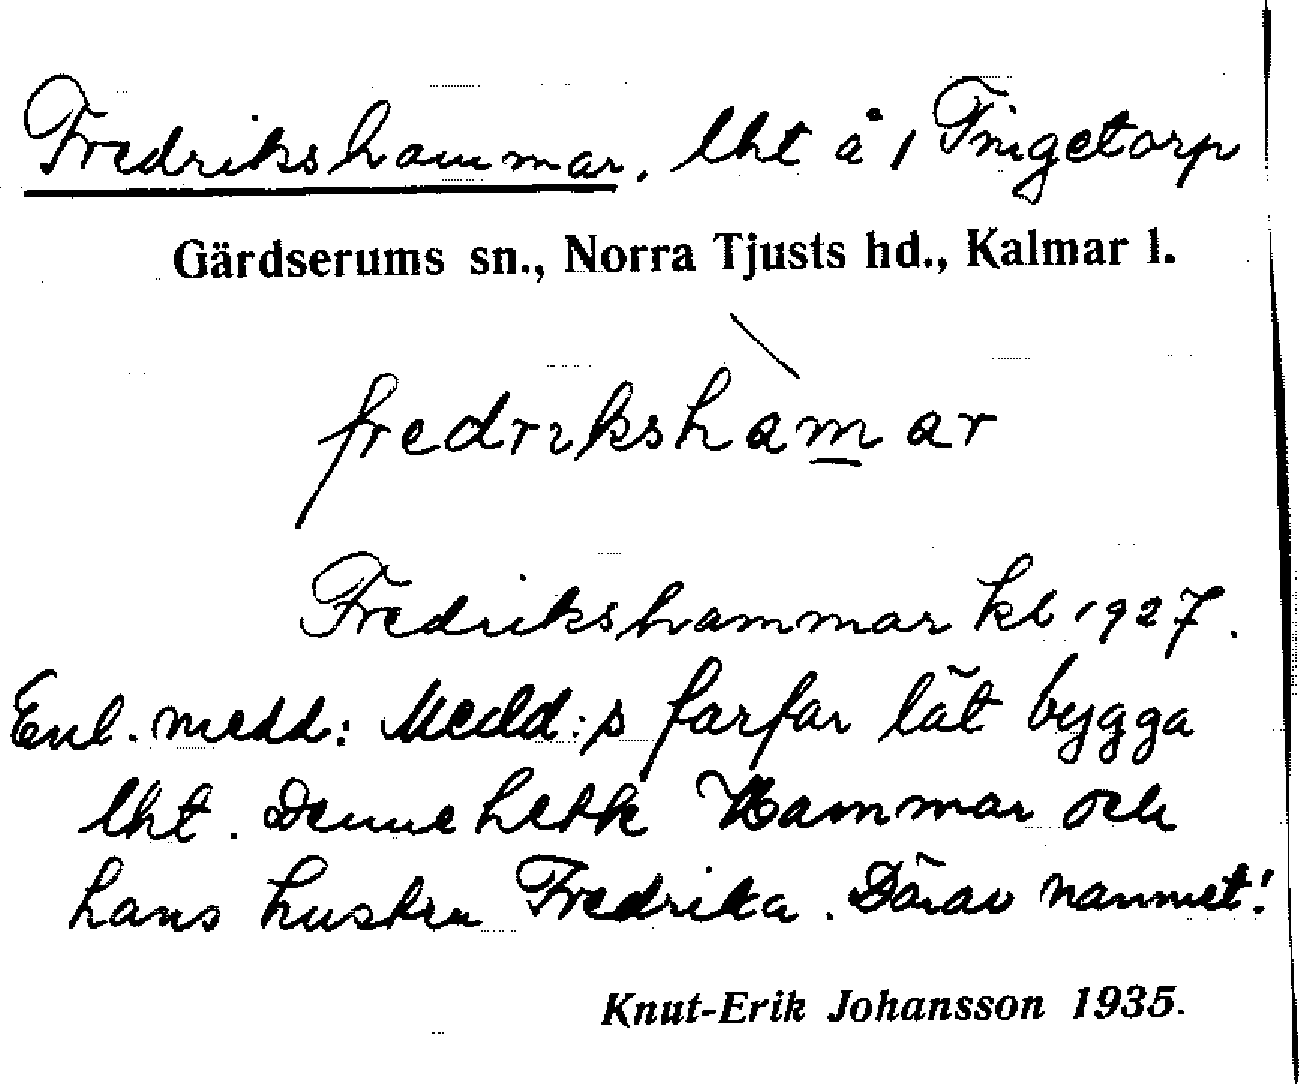 Fredrikshammar. lht å 1 Tingetorp
Gärdserums sn., Norra Tjusts hd., Kalmar l.
fredrikshamar
Fredrikshammar kb 1927.
Enl. medd: Medd:s farfar lät bygga
lht. Denne hette Hammar och
hans hustru Fredrika. Därav namnet!
Knut-Erik Johansson 1935.